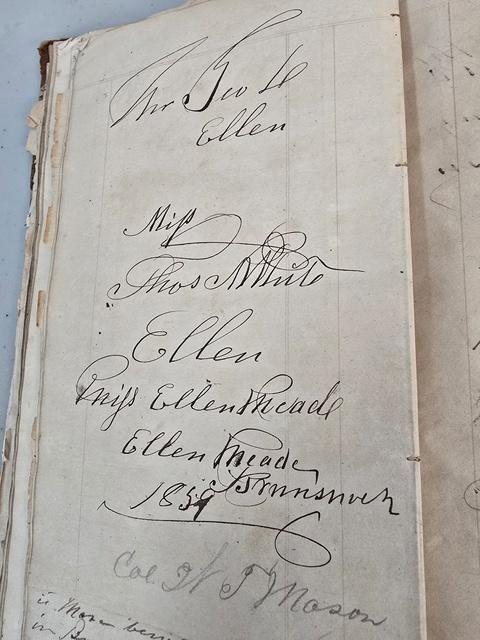 Ellen
Miss
Thos White
Ellen
Miss Ellen Meade
Ellen Meade
1859 Brunswick
Col W T Mason
in